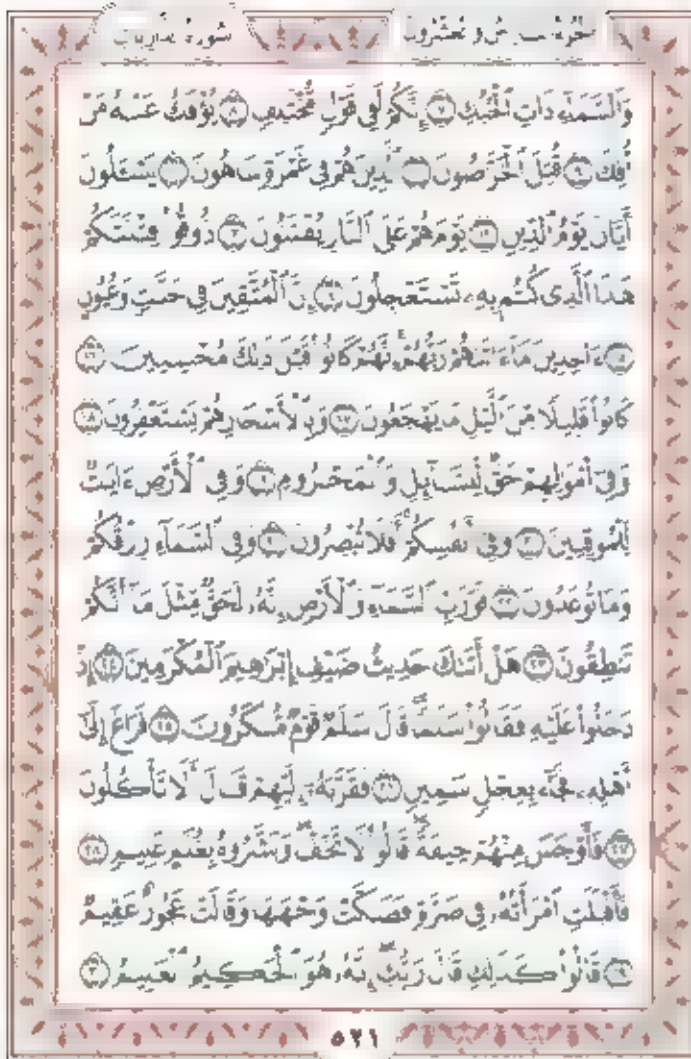 سورة الذاريات الجزء السادس والعشرون
وَٱلسَّمَآءِ ذَاتِ ٱلْحُبُكِ ٧ إِنَّكُمْ لَفِى قَوْلٍ مُّخْتَلِفٍ ٨ يُؤْفَكُ عَنْهُ مَنْ
أُفِكَ ٩ قُتِلَ ٱلْخَرَّٰصُونَ ١٠ ٱلَّذِينَ هُمْ فِى غَمْرَةٍ سَاهُونَ ١١ يَسْـَٔلُونَ
أَيَّانَ يَوْمُ ٱلدِّينِ ١٢ يَوْمَ هُمْ عَلَى ٱلنَّارِ يُفْتَنُونَ ١٣ ذُوقُوا۟ فِتْنَتَكُمْ
هَٰذَا ٱلَّذِى كُنتُم بِهِۦ تَسْتَعْجِلُونَ ١٤ إِنَّ ٱلْمُتَّقِينَ فِى جَنَّٰتٍ وَعُيُونٍ
١٥ ءَاخِذِينَ مَآ ءَاتَىٰهُمْ رَبُّهُمْ إِنَّهُمْ كَانُوا۟ قَبْلَ ذَٰلِكَ مُحْسِنِينَ ١٦
كَانُوا۟ قَلِيلًا مِّنَ ٱلَّيْلِ مَا يَهْجَعُونَ ١٧ وَبِٱلْأَسْحَارِ هُمْ يَسْتَغْفِرُونَ ١٨
وَفِىٓ أَمْوَٰلِهِمْ حَقٌّ لِّلسَّآئِلِ وَٱلْمَحْرُومِ ١٩ وَفِى ٱلْأَرْضِ ءَايَٰتٌ
لِّلْمُوقِنِينَ ٢٠ وَفِىٓ أَنفُسِكُمْ أَفَلَا تُبْصِرُونَ ٢١ وَفِى ٱلسَّمَآءِ رِزْقُكُمْ
وَمَا تُوعَدُونَ ٢٢ فَوَرَبِّ ٱلسَّمَآءِ وَٱلْأَرْضِ إِنَّهُۥ لَحَقٌّ مِّثْلَ مَآ أَنَّكُمْ
تَنطِقُونَ ٢٣ هَلْ أَتَىٰكَ حَدِيثُ ضَيْفِ إِبْرَٰهِيمَ ٱلْمُكْرَمِينَ ٢٤ إِذْ
دَخَلُوا۟ عَلَيْهِ فَقَالُوا۟ سَلَٰمًا قَالَ سَلَٰمٌ قَوْمٌ مُّنكَرُونَ ٢٥ فَرَاغَ إِلَىٰٓ
أَهْلِهِۦ فَجَآءَ بِعِجْلٍ سَمِينٍ ٢٦ فَقَرَّبَهُۥٓ إِلَيْهِمْ قَالَ أَلَا تَأْكُلُونَ
٢٧ فَأَوْجَسَ مِنْهُمْ خِيفَةً قَالُوا۟ لَا تَخَفْ وَبَشَّرُوهُ بِغُلَٰمٍ عَلِيمٍ ٢٨
فَأَقْبَلَتِ ٱمْرَأَتُهُۥ فِى صَرَّةٍ فَصَكَّتْ وَجْهَهَا وَقَالَتْ عَجُوزٌ عَقِيمٌ
٢٩ قَالُوا۟ كَذَٰلِكِ قَالَ رَبُّكِ إِنَّهُۥ هُوَ ٱلْحَكِيمُ ٱلْعَلِيمُ ٣٠
٥٢١